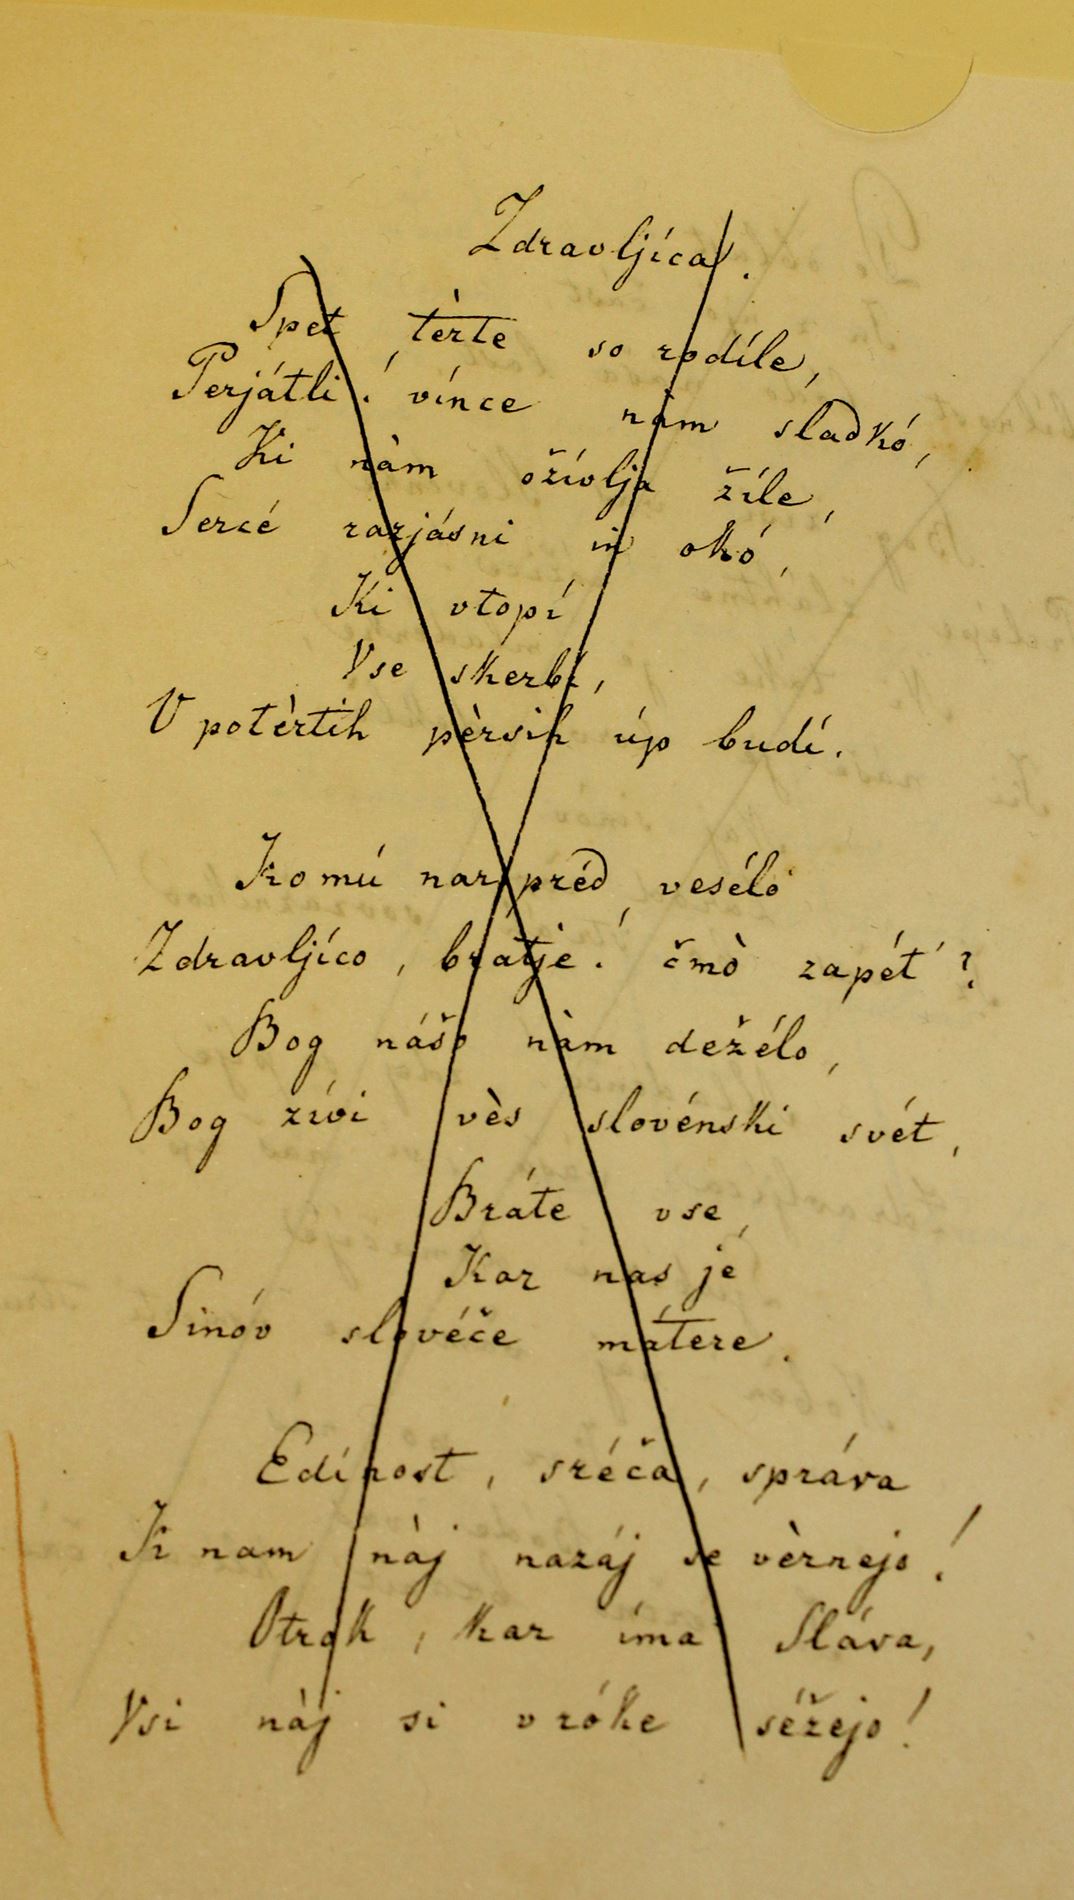 Zdravljíca.
Spet tèrte so rodíle,
Perjátli! vínce nàm sladkó,
Ki nàm ožívlja žíle,
Sercé razjásni in okó,
Ki vtopí
Vse skerbí,
V potèrtih pèrsih úp budí.
Komú narpréd vesélo
Zdravljíco, brátje! čmò zapét'?
Bog nášo nàm dežélo,
Bog žívi vès slovénski svét,
Bráte vse,
Kar nas jé
Sinóv slovéče mátere.
Edínost, sréča, správa
K nam nàj nazáj se vèrnejo!
Otrok, kar íma Sláva,
Vsi nàj si v róke séžejo!